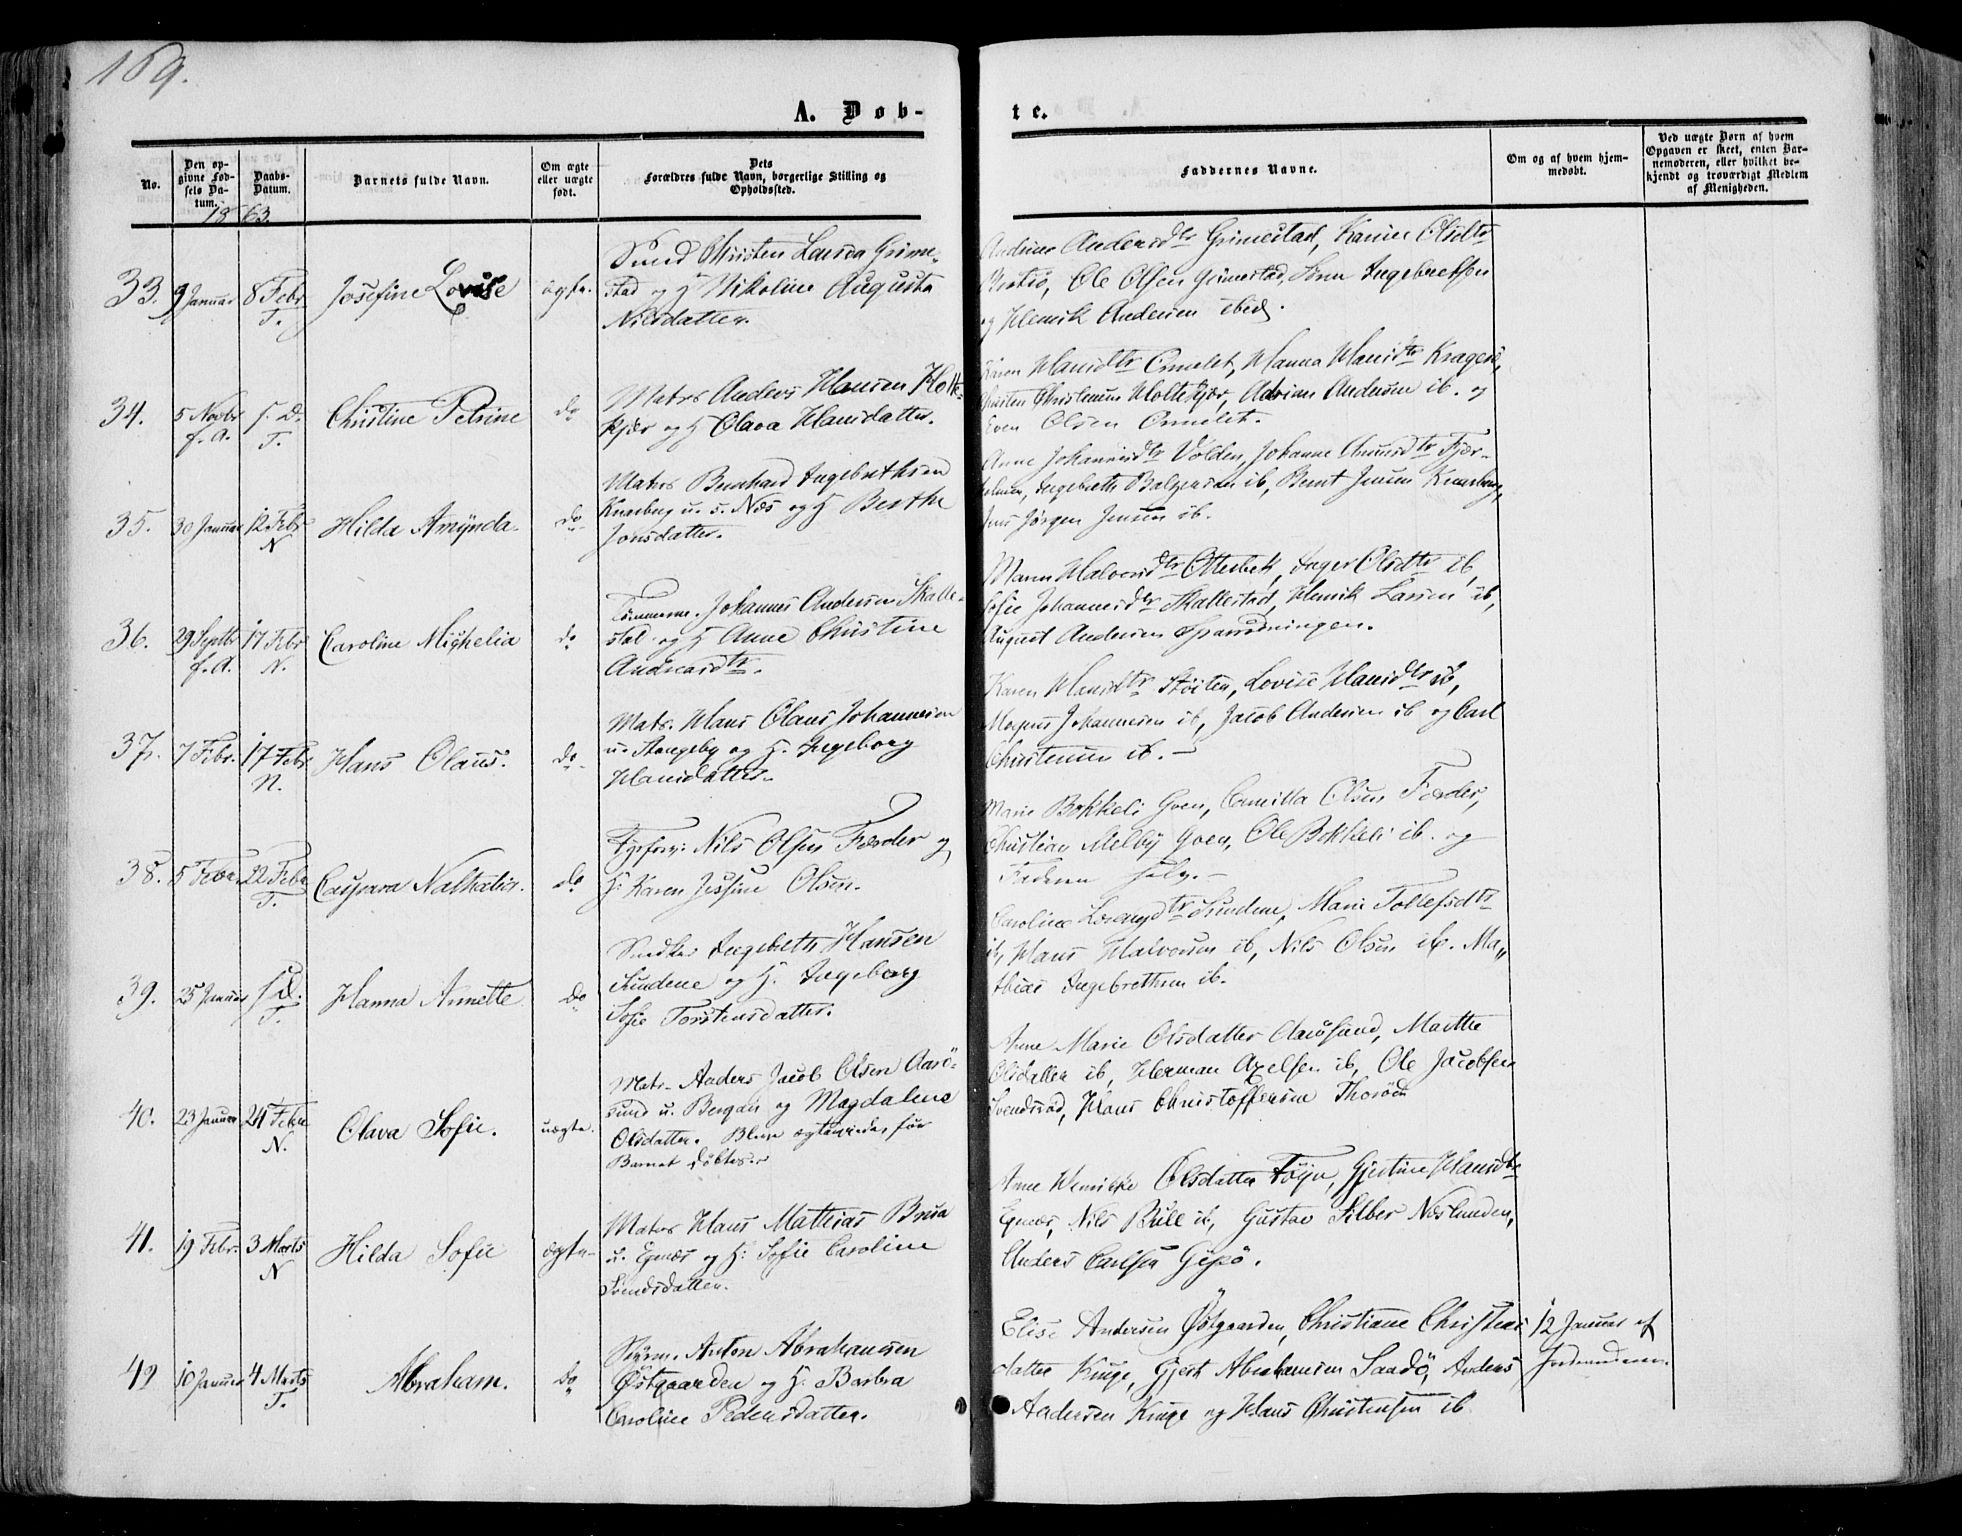 169.
A. Døb-
te.
No.
Den op-
givne Fød-
sels Da-
tum.
Daabs-
Datum.
Barnets fulde Navn.
Om ægte
eller uægte
født.
Dets
Forældres fulde Navn, borgerlige Stilling og
Opholdssted.
Faddernes Navne.
Om og af hvem hjem-
medøbt.
Ved uægte Børn af hvem
Opgaven er skeet, enten Bar-
nemoderen, eller hvilket be-
kjendt og troværdigt Medlem
af Menigheden.
1863.
33. 9 Januar 8 Febr T. Josefine Lovise ægte.
Christen Grime-
stad og H Nikoline Augusta
Nilsdatter.
Andersdtr Grimestad, Karen Olsdtr
Ole Olsen Grimestad, Ingebretsen
og Henrik Andersen ibid.
34. 5 Novbr f. A. s. D. T. Christine Petrine do
Matrs Anders Hansen Holte-
kjær og H Olava Hansdatter.
Karen Hansdtr Ormelet, Hanna Hansdtr Kragerø,
Christen Christensen Holtekjær, Andersen ib. og
Even Olsen Ormelet.
35. 30 Januar 12 Febr N Hilda Amynda do
Matrs Bernhard Ingebrethsen
Knarberg u. s. Næs og H Berthe
Jonsdatter.
Anne Johannesdtr Volden, Johanne
Ingebreth ib, Bernt Jensen Knarberg,
Jens Jørgen Jensen ib.
36. 29 Septbr f. A. 17 Febr N. Caroline Mighelia do
Tømmerm. Johannes Andersen Skalle-
stad og H Anne Christine
Andreasdtr.
Maren Halvorsdtr Otterbek, Inger Olsdtr ib,
Sofie Johannesdtr Skallestad, Henrik Larsen ib,
August Andersen
37. 7 Febr. 17 Febr N. Hans Olaus. do
Matr. Hans Olaus Johannesen
u. Stangeby og H. Ingeborg
Hansdatter.
Karen Hansdtr Støiten, Lovise Hansdtr ib,
Johannesen ib, Jacob Andersen ib og Carl
Christensen ib.
38. 5 Febr. 22 Febr T. Caspara Nathalie. do
Fyrforv: Nils Olsen Færder og
H: Karen Jessine Olsen.
Marie Bokkeli Goen, Camilla Olsen Færder,
Christian Melby Goen, Ole Bokkeli ib. og
Faderen selv.
39. 25 Januar s. d. T. Hanna Annette do
Snedker Ingebreth Hansen
Sundene og H. Ingeborg
Sofie Torstensdatter.
Caroline Lorenzdtr Sundene, Marie Tollefsdtr
ib, Hans Halvorsen ib, Nils Olsen ib. Ma„
thias Ingebrethsen ib.
40. 23 Januar 24 Febr N. Olava Sofie. uægte.
Matr. Anders Jacob Olsen Aarø-
sund u. Bergan og Magdalena
Olsdatter. Bleve ægteviede før
Barnet døbtes.
Anne Marie Olsdatter Aarøsund, Marthe
Olsdatter ib, Herman Axelsen ib, Ole Jacobsen
Svendsrød, Hans Christoffersen Thorød
41. 19 Febr. 3 Marts N Hilda Sofie ægte
Matrs Hans Mathias Brun
u. Egenæs og H: Sofie Caroline
Svendsdatter.
Anne Olsdatter Føyn, Gjertine Hansdtr
Egenæs, Nils Bull ib, Gustav Silber Næslunden,
Anders Carlsen Gipø.
42 10 Januar 4 Marts T. Abraham. do
Anton Abrahamsen
Østgaarden og H: Barbra
Caroline Pedersdatter.
Elise Andersen Østgaarden, Christiane Christians
datter Kruge, Gjert Abrahamsen Sandø, Anders
Andersen Kruge og Hans Christensen ib
12 Januar af
Jordmoderen.